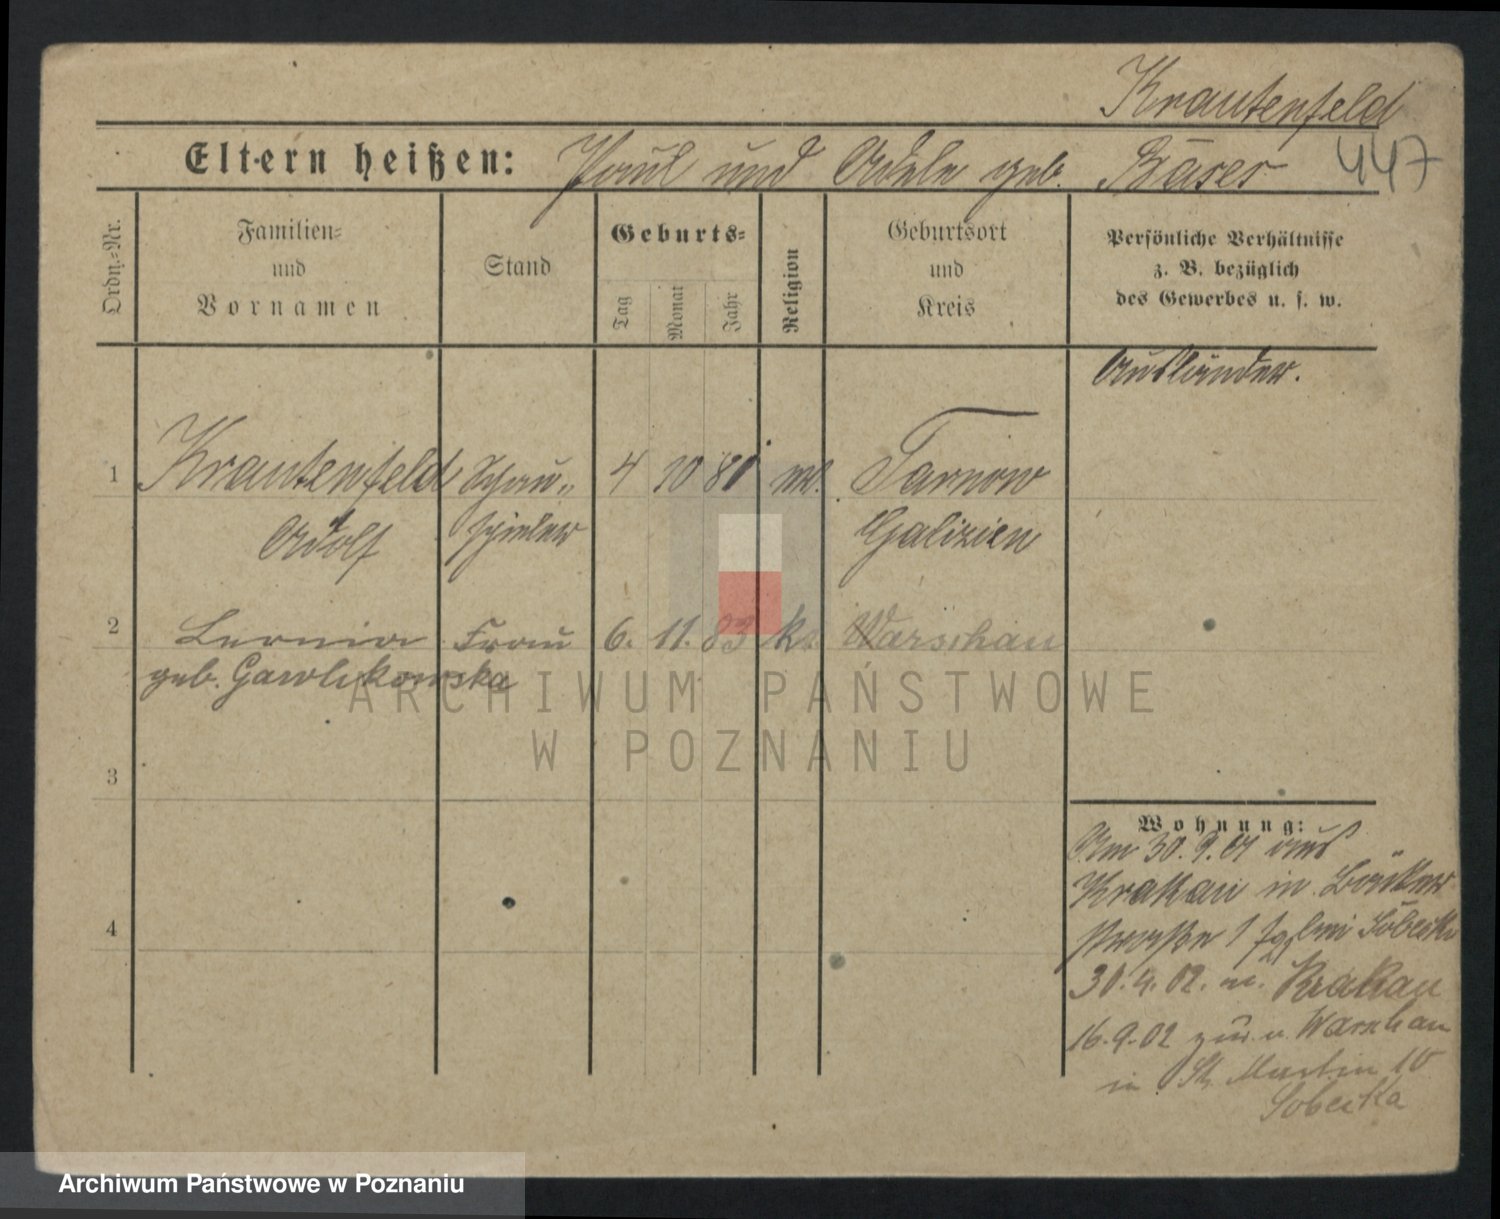 Krautenfeld
Eltern heißen: Paul und Adele geb. Bäser 447
Ordn.-Nr.
Familien-
und
Vornamen
Stand
Geburts-
Tag
Monat
Jahr
Religion
Geburtsort
und
Kreis
Persönliche Verhältnisse
z. B. bezüglich
des Gewerbes u. s. w.
Ausländer.
1 Krautenfeld Schau- 4 10 81 Tarnow
Adolf spieler Galizien
2 Frau 6. 11. 83 k. Warschau
geb. Gawlikowska
3
4
Wohnung:
Am 30.9.01 aus
Krakau in
straße 1 bei Sobecka
30.4.02. n. Krakau
16.9.02 zur. v. Warschau
in St. Martin 10
Sobecka
ARCHIWUM PAŃSTWOWE
W POZNANIU
Archiwum Państwowe w Poznaniu